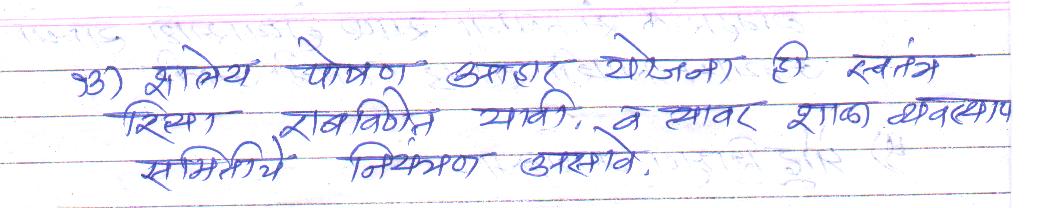 १३) शालेय पोषण आहार योजना ही स्वतंत्र
रित्या राबविणेत यावी. व त्यावर शाळा व्यवस्थाप
समितीचे नियंत्रण असावे.